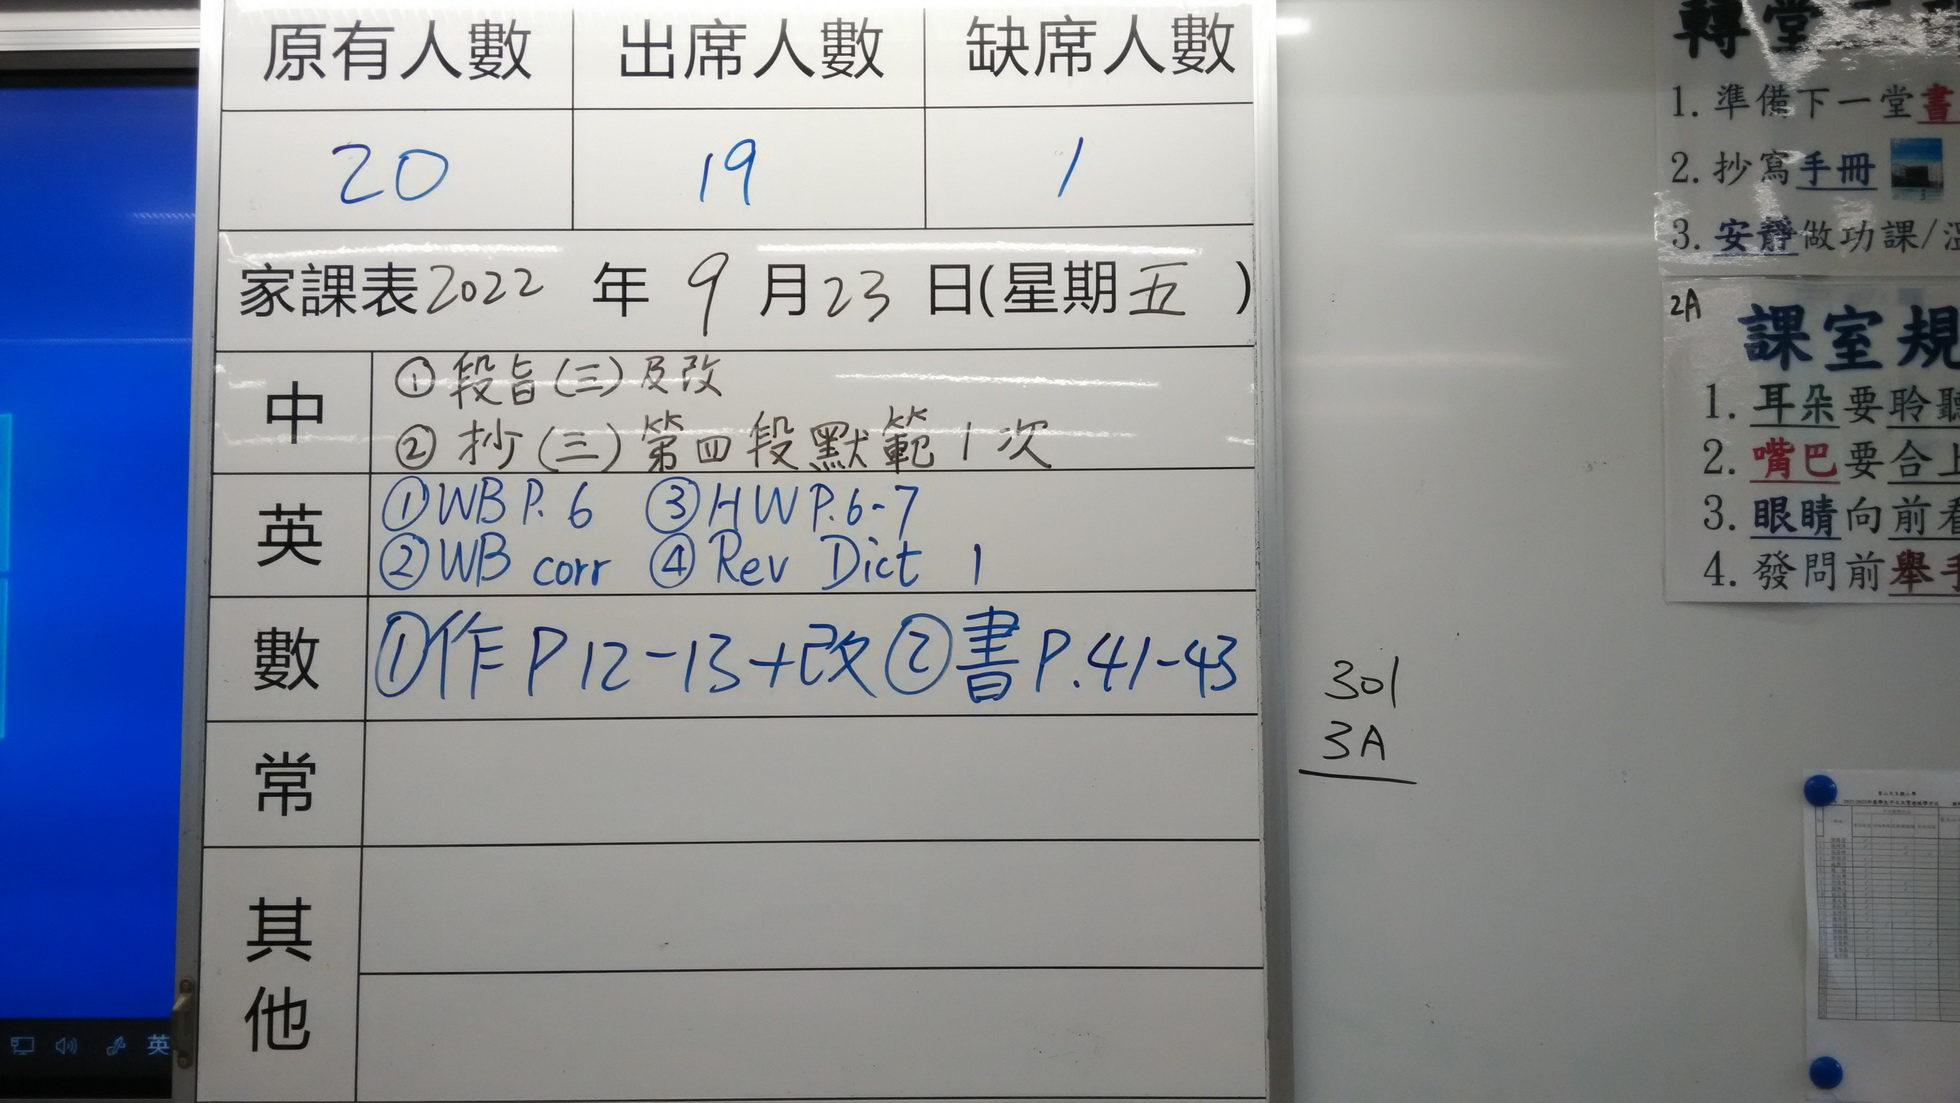 原有人數 出席人數 缺席人數
20 19 1
家課表2022 年 9 月23 日(星期五 )
中
①段旨(三)及改
②抄(三)第四段默範1次
英
①WB P. 6 ③HW P.6-7
②WB corr ④Rev Dict 1
數 ①作P12-13+改②書P.41-43
常
其他
301
3A
轉堂
1. 準備下一堂書
2. 抄寫手冊
3. 安靜做功課/
2A
課室規
1. 耳朵要聆聽
2. 嘴巴要合上
3. 眼睛向前看
4. 發問前舉手
英